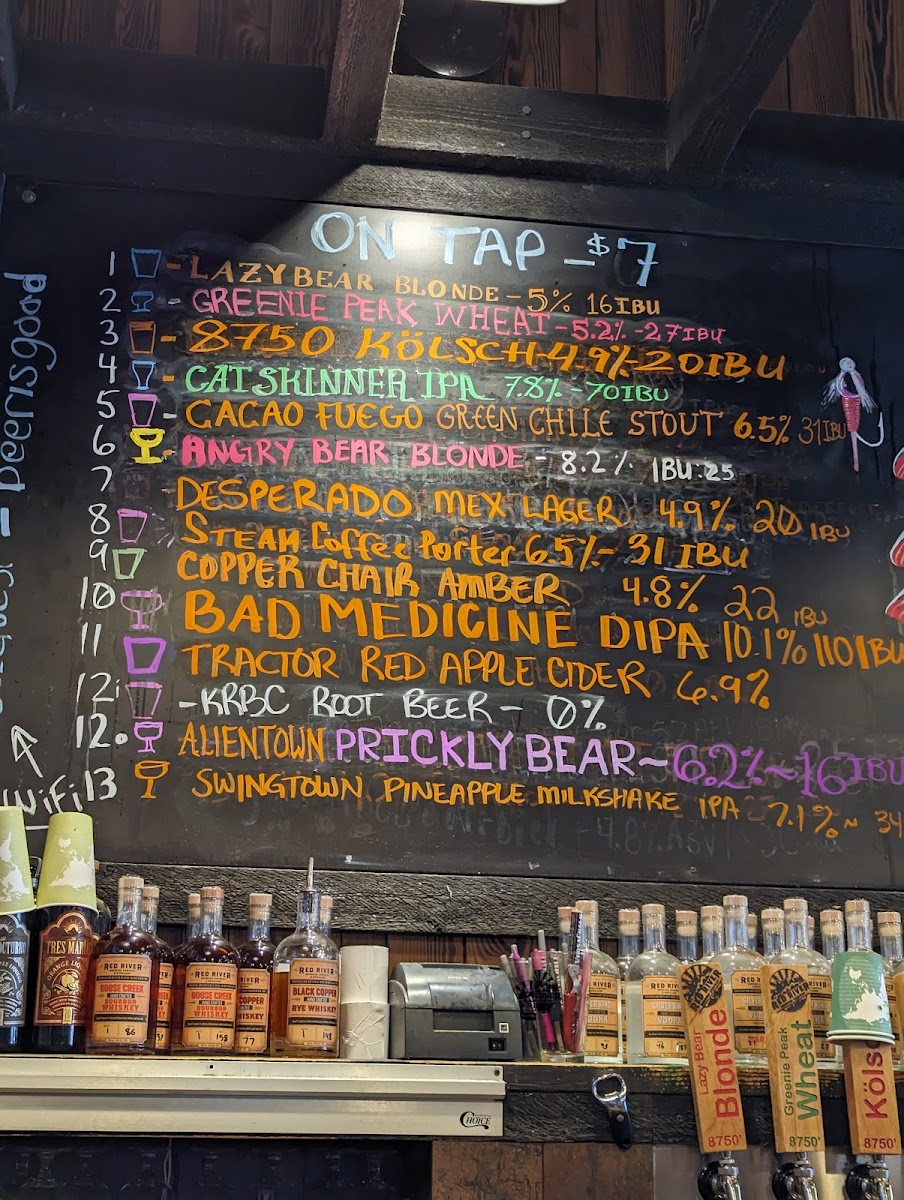 ON TAP - $7
1 - LAZY BEAR BLONDE - 5% 16 IBU
2 - GREENIE PEAK WHEAT - 5.2% - 27 IBU
3 - 8750 KÖLSCH - 4.9% - 20 IBU
4 - CATSKINNER IPA 7.8% - 70 IBU
5 - CACAO FUEGO GREEN CHILE STOUT 6.5% 31 IBU
6 - ANGRY BEAR BLONDE - 8.2% IBU:25
7 DESPERADO MEX LAGER 4.9% 20 IBU
8 STEAM Coffee Porter 6.5% - 31 IBU
9 COPPER CHAIR AMBER 4.8% 22 IBU
10 BAD MEDICINE DIPA 10.1% 110 IBU
11 TRACTOR RED APPLE CIDER 6.9%
12i - KRBC ROOT BEER - 0%
12. ALIENTOWN PRICKLY BEAR ~ 6.2% ~ 16 IBU
13 SWINGTOWN PINEAPPLE MILKSHAKE IPA 7.1% ~ 34
- beerisgood
WiFi
TRES
RED RIVER
GOOSE CREEK
BOURBON
WHISKEY
86
RED RIVER
GOOSE CREEK
BOURBON
WHISKEY
COPPER
WHISKEY
77
RED RIVER
BLACK COPPER
RYE WHISKEY
CHOICE
RED RIVER
Lazy Bear
Blonde
8750'
RED RIVER
Greenie Peak
Wheat
8750'
Köls
8750'